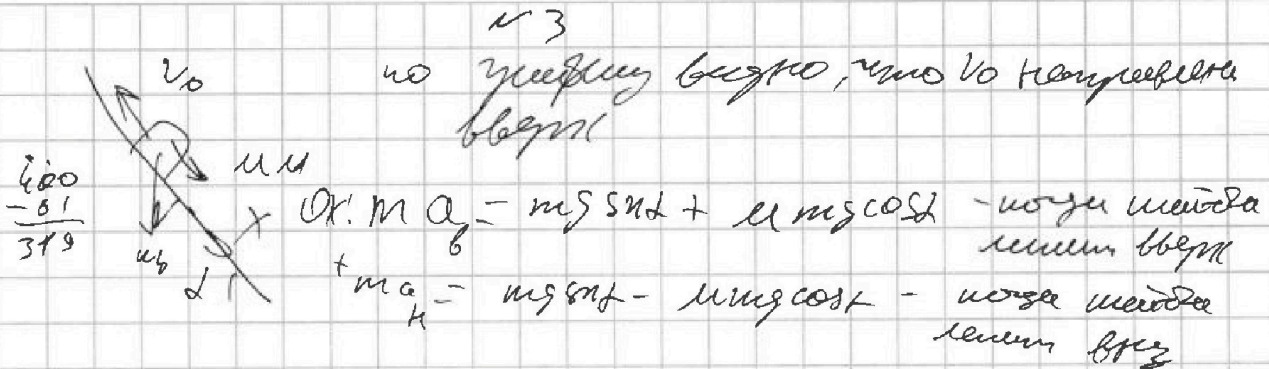 №3
V₀ по графику видно, что V₀ направлена
вверх
400
- 81
319
X
Ox: m a_в = mg sinα + μmg cosα - когда шайба
летит вверх
α
+ m a_н = mg sinα - μmg cosα - когда шайба
летит вниз